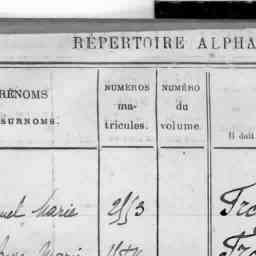 RÉPERTOIRE ALPHA
RÉNOMS
SURNOMS.
NUMÉROS
ma-
tricules.
NUMÉRO
du
volume.
Il doit
uel Marie
Marie